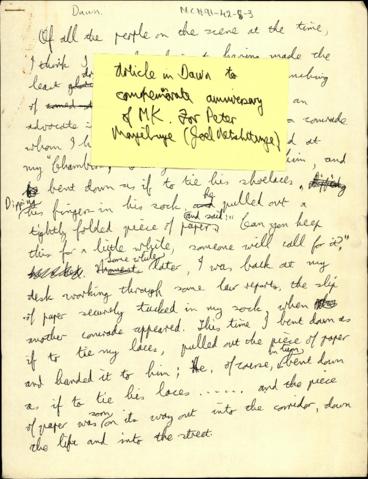 Dawn. MCH91-42-8-3
Of all the people on the scene at the time,
I think I having made the
least
of an
advocate i comrade
whom I h at
my "Chamb him, and
bent down as if to tie his shoelaces.
Dipping his finger in his sock, he pulled out a
tightly folded piece of paper, and said: "Can you keep
this for a little while, someone will call for it?"
some while later, I was back at my
desk working through some law reports, the slip
of paper securely tucked in my sock, when
another comrade appeared. This time, I bent down as
if to tie my laces, pulled out the piece of paper
and handed it to him; he, of course, in turn, bent down
as if to tie his laces ...... and the piece
of paper was soon on its way out into the corridor, down
the lift and into the street.
Article in Dawn to
commemorate anniversary
of MK. For Peter